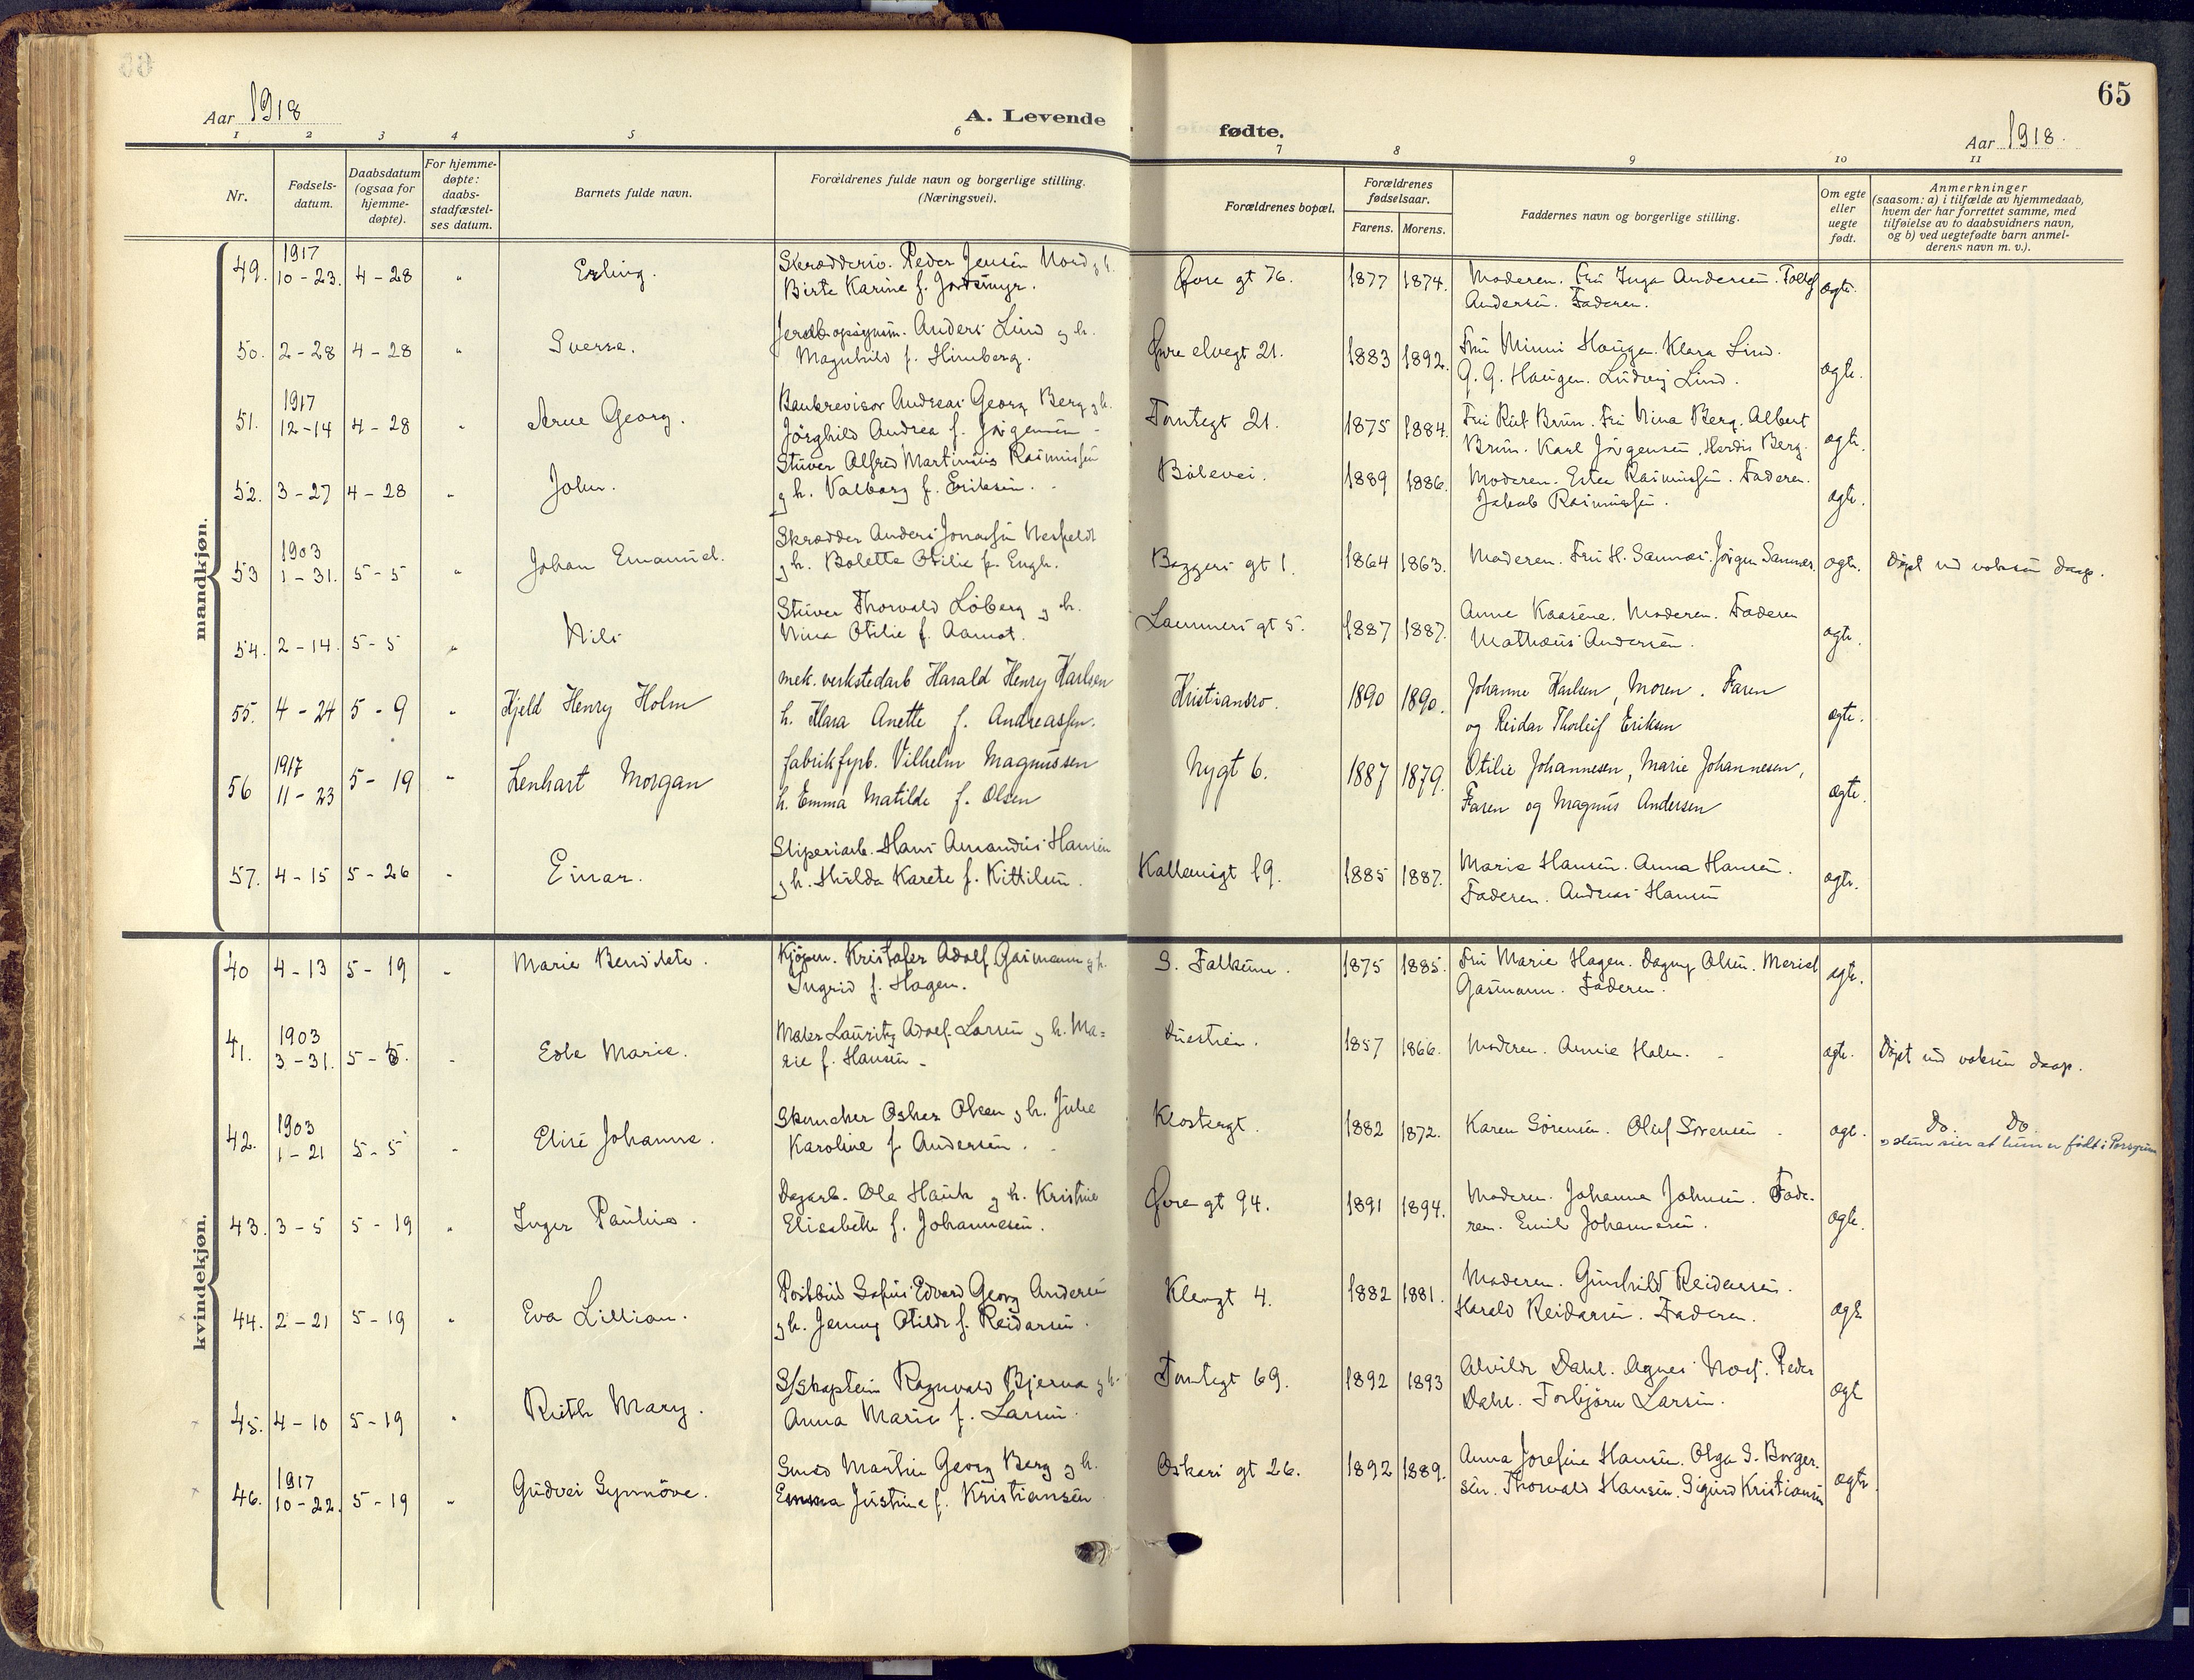 65
Aar 1918
A. Levende
fødte.
Aar 1918.
1 2 3 4 5 6 7 8 9 10 11
Nr.
Fødsels-
datum.
Daabsdatum
(ogsaa for
hjemme-
døpte).
For hjemme-
døpte:
daabs-
stadfæstel-
ses datum.
Barnets fulde navn.
Forældrenes fulde navn og borgerlige stilling.
(Næringsvei).
Forældrenes bopæl.
Forældrenes
fødselsaar.
Farens. Morens.
Faddernes navn og borgerlige stilling.
Om egte
eller
uegte
født.
Anmerkninger
(saasom: a) i tilfælde av hjemmedaab,
hvem der har forrettet samme, med
tilføielse av to daabsvidners navn,
og b) ved uegtefødte barn anmel-
derens navn m. v.).
mandkjøn.
49. 1917 10-23. 4-28 " Erling. Skræddersv. Peder Jensen Nord g h.
Birte Karine f. Øvre gt 76. 1877 1874. Moderen. Fru Inga Andersen. Tollef
Andersen. Faderen. ægte.
50. 2-28 4-28 " Sverre. Anders Lind g h.
Magnhild f. Himberg. Øvre elvegt 21. 1883 1892. Fru Minni Haugen. Klara Lind.
G. G. Haugen. Ludvig Lind. ægte.
51. 1917 12-14 4-28 " Arne Georg. Bankrevisor Andreas Georg Berg g h.
Jørghild Andrea f. Jørgensen Tomtegt 21. 1875 1884. Fru Rut Brun. Fru Nina Berg. Albert
Brun. Karl Jørgensen. Herdis Berg. ægte.
52. 3-27 4-28 " John. Stuver Alfred Martinius Rasmussen
g h. Valborg f. Eriksen. Bølevei. 1889 1886. Moderen. Ester Rasmussen. Faderen.
Jakob Rasmussen. ægte.
53 1903 1-31. 5-5 " Johan Emanuel. Skrædder Anders Jonassen Nesfeldt
g h. Bolette Otilie f. Engh. Baggers gt 1. 1864 1863. Moderen. Fru H. Sannæs. Jørgen Sannæs. ægte. Døpt ved voksen daap.
54. 2-14. 5-5 " Nils Stuver Thorvald Løberg g h.
Nina Otilie f. Aamot. Lammers gt 5. 1887 1887. Anne Kaasene. Moderen. Faderen
Mathæus Andersen. ægte.
55. 4-24 5-9 " Kjeld Henry Holm mek. verkstedarb Harald Henry Karlsen
h. Klara Anette f. Andreassen. Kristiansv. 1890 1890. Johanne Karlsen, Moren. Faren
og Reidar Thorleif Eriksen ægte.
56 1917 11-23 5-19 " Lenhart Morgan fabrikfyrb. Vilhelm Magnussen
h. Emma Matilde f. Olsen Nygt 6. 1887 1879. Otilie Johannesen, Marie Johannesen,
Faren og Magnus Andersen ægte.
57. 4-15 5-26 " Einar. Sliperiarb. Hans Amandus Hansen
g h. Hulda Karete f. Kittilsen. Kallemsgt 19. 1885 1887. Marie Hansen. Anna Hansen.
Faderen. Andreas Hansen ægte.
kvindekjøn.
40 4-13 5-19 " Marie Bendikte. Kjøpm. Kristofer Adolf Gasmann g h.
Ingrid f. Hagen. S. Falkum. 1875 1885. Fru Marie Hagen. Dagny Olsen.
Gasmann. Faderen. ægte.
41. 1903 3-31. 5-5. " Edle Marie. Maler Lauritz Adolf Larsen g h. Ma=
rie f. Hansen. Duestien. 1857 1866. Moderen. Annie Holm. ægte. Døpt ved voksen daap.
42. 1903 1-21 5-5 " Elise Johanne. Skumaker Oskar Olsen g h. Julie
Karoline f. Andersen. Klostergt. 1882 1872. Karen Sørensen. Oluf Sørensen. ægte. Do. Do.
43. 3-5 5-19 " Inger Pauline. Dagarb. Ole Hauk g h. Kristine
Elisabeth f. Johannesen. Øvre gt 94. 1891 1894. Moderen. Johanna Johnsen. Fade-
ren. Emil Johannesen. ægte.
44. 2-21 5-19 " Eva Lillian. Postbud Sofus Edvard Georg Andersen
g h. Jenny Otilde f. Reidarsen. Klevgt 4. 1882 1881. Moderen. Gunhild Reidarsen.
Harald Reidarsen. Faderen. ægte
45. 4-10 5-19 " Ruth Mary. S/Skaptein Ragnvald Bjerva g h.
Anna Marie f. Larsen. Tomtegt 69. 1892 1893 Alvilde Dahl. Agnes Næs. Peder
Dahl. Torbjørn Larsen. ægte
46. 1917 10-22. 5-19 " Gudvei Synnöve. Smed Martin Georg Berg g h.
Emma Justine f. Kristiansen Oskars gt 26. 1892 1889. Anna Josefine Hansen. Olga S. Borger-
sen. Thorvald Hansen. Sigurd Kristiansen ægte